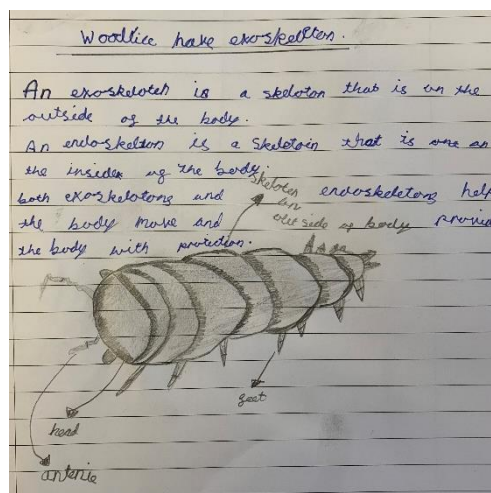 Woodlice have exoskeleton.
An exoskeloteh is a skeloton that is on the
outside of the body.
An endoskelton is a skelotoin that is one on
the insides of the body.
both exoskelotons and endoskeletons help
the body move and provid
the body with protection.
skeloten
on
out side of body
feet
head
antenie